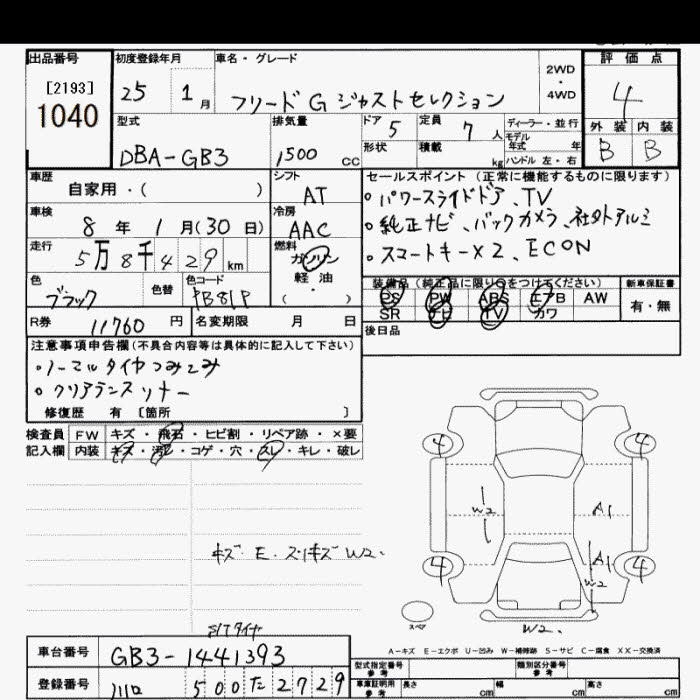 出品番号
[2193]
1040
初度登録年月
25 1月
車名・グレード
フリード G ジャストセレクション
2WD
・
4WD
評価点
4
外装 内装
B B
型式
DBA-GB3
排気量
1500 CC
ドア 5
定員 7 人
形状
積載 kg
ディーラー・並行
モデル年式 年
ハンドル 左・右
車歴
自家用・( )
シフト
AT
車検
8年 1月(30日)
冷房
AAC
走行
5万8千429km
燃料
ガソリン
軽・油
( )
色
ブラック
色替
色コード
PB81P
R券 11760 円
名変期限 月 日
セールスポイント (正常に機能するものに限ります)
・パワースライドドア、TV
・純正ナビ、バックカメラ、社外アルミ
・スマートキー×2、ECON
装備品(純正品に限り○をつけてください)
PS PW ABS エアB AW
SR ナビ TV カワ
新車保証書
有・無
後日品
注意事項申告欄(不具合内容等は具体的に記入して下さい)
・ノーマルタイヤつみこみ
修復歴 有 〔箇所 〕
検査員記入欄
FW キズ・飛石・ヒビ割・リペア跡・×要
内装 キズ・汚レ・コゲ・穴・スレ・キレ・破レ
キズ・E・スリキズ W2.
4 4
W2 A1
A1
4 4
W2
スペア
W2.
A-キズ E-エクボ U-凹み W-補修跡 S-サビ C-腐食 XX-交換済
車台番号
GB3-1441393
登録番号
川口 500 た 2729
型式指定番号 参考
類別区分番号 参考
車庫証明用 参考
長さ cm 幅 cm 高さ cm